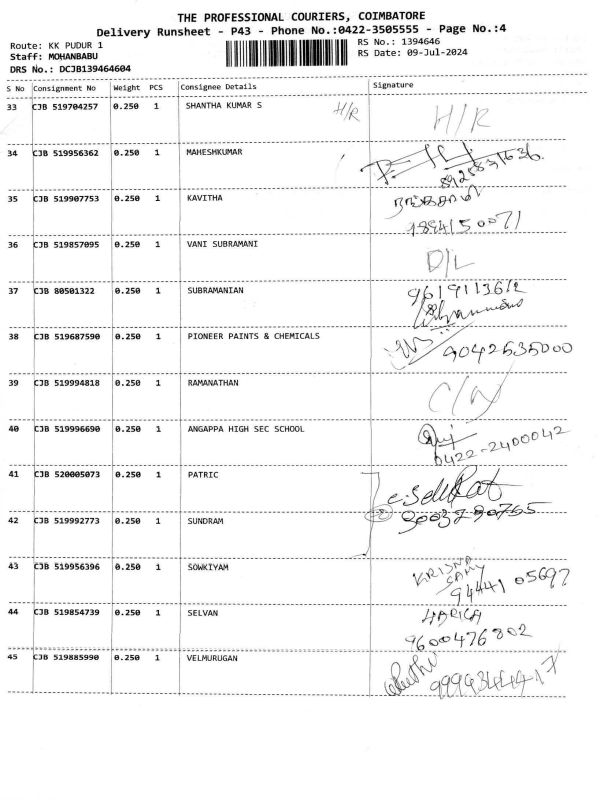 THE PROFESSIONAL COURIERS, COIMBATORE
Delivery Runsheet - P43 - Phone No.:0422-3505555 - Page No.:4
Route: KK PUDUR 1 RS No.: 1394646
Staff: MOHANBABU RS Date: 09-Jul-2024
DRS No.: DCJB139464604
S No Consignment No Weight PCS Consignee Details Signature
33 CJB 519704257 0.250 1 SHANTHA KUMAR S H/R H/R
34 CJB 519956362 0.250 1 MAHESHKUMAR
35 CJB 519907753 0.250 1 KAVITHA
36 CJB 519857095 0.250 1 VANI SUBRAMANI D/L
37 CJB 80501322 0.250 1 SUBRAMANIAN
38 CJB 519687590 0.250 1 PIONEER PAINTS & CHEMICALS
9042535000
39 CJB 519994818 0.250 1 RAMANATHAN
40 CJB 519996690 0.250 1 ANGAPPA HIGH SEC SCHOOL
0422-2400042
41 CJB 520005073 0.250 1 PATRIC
42 CJB 519992773 0.250 1 SUNDRAM
43 CJB 519956396 0.250 1 SOWKIYAM KRISNA
SAMY
94441 05697
44 CJB 519854739 0.250 1 SELVAN HARIGA
9600476802
45 CJB 519885990 0.250 1 VELMURUGAN